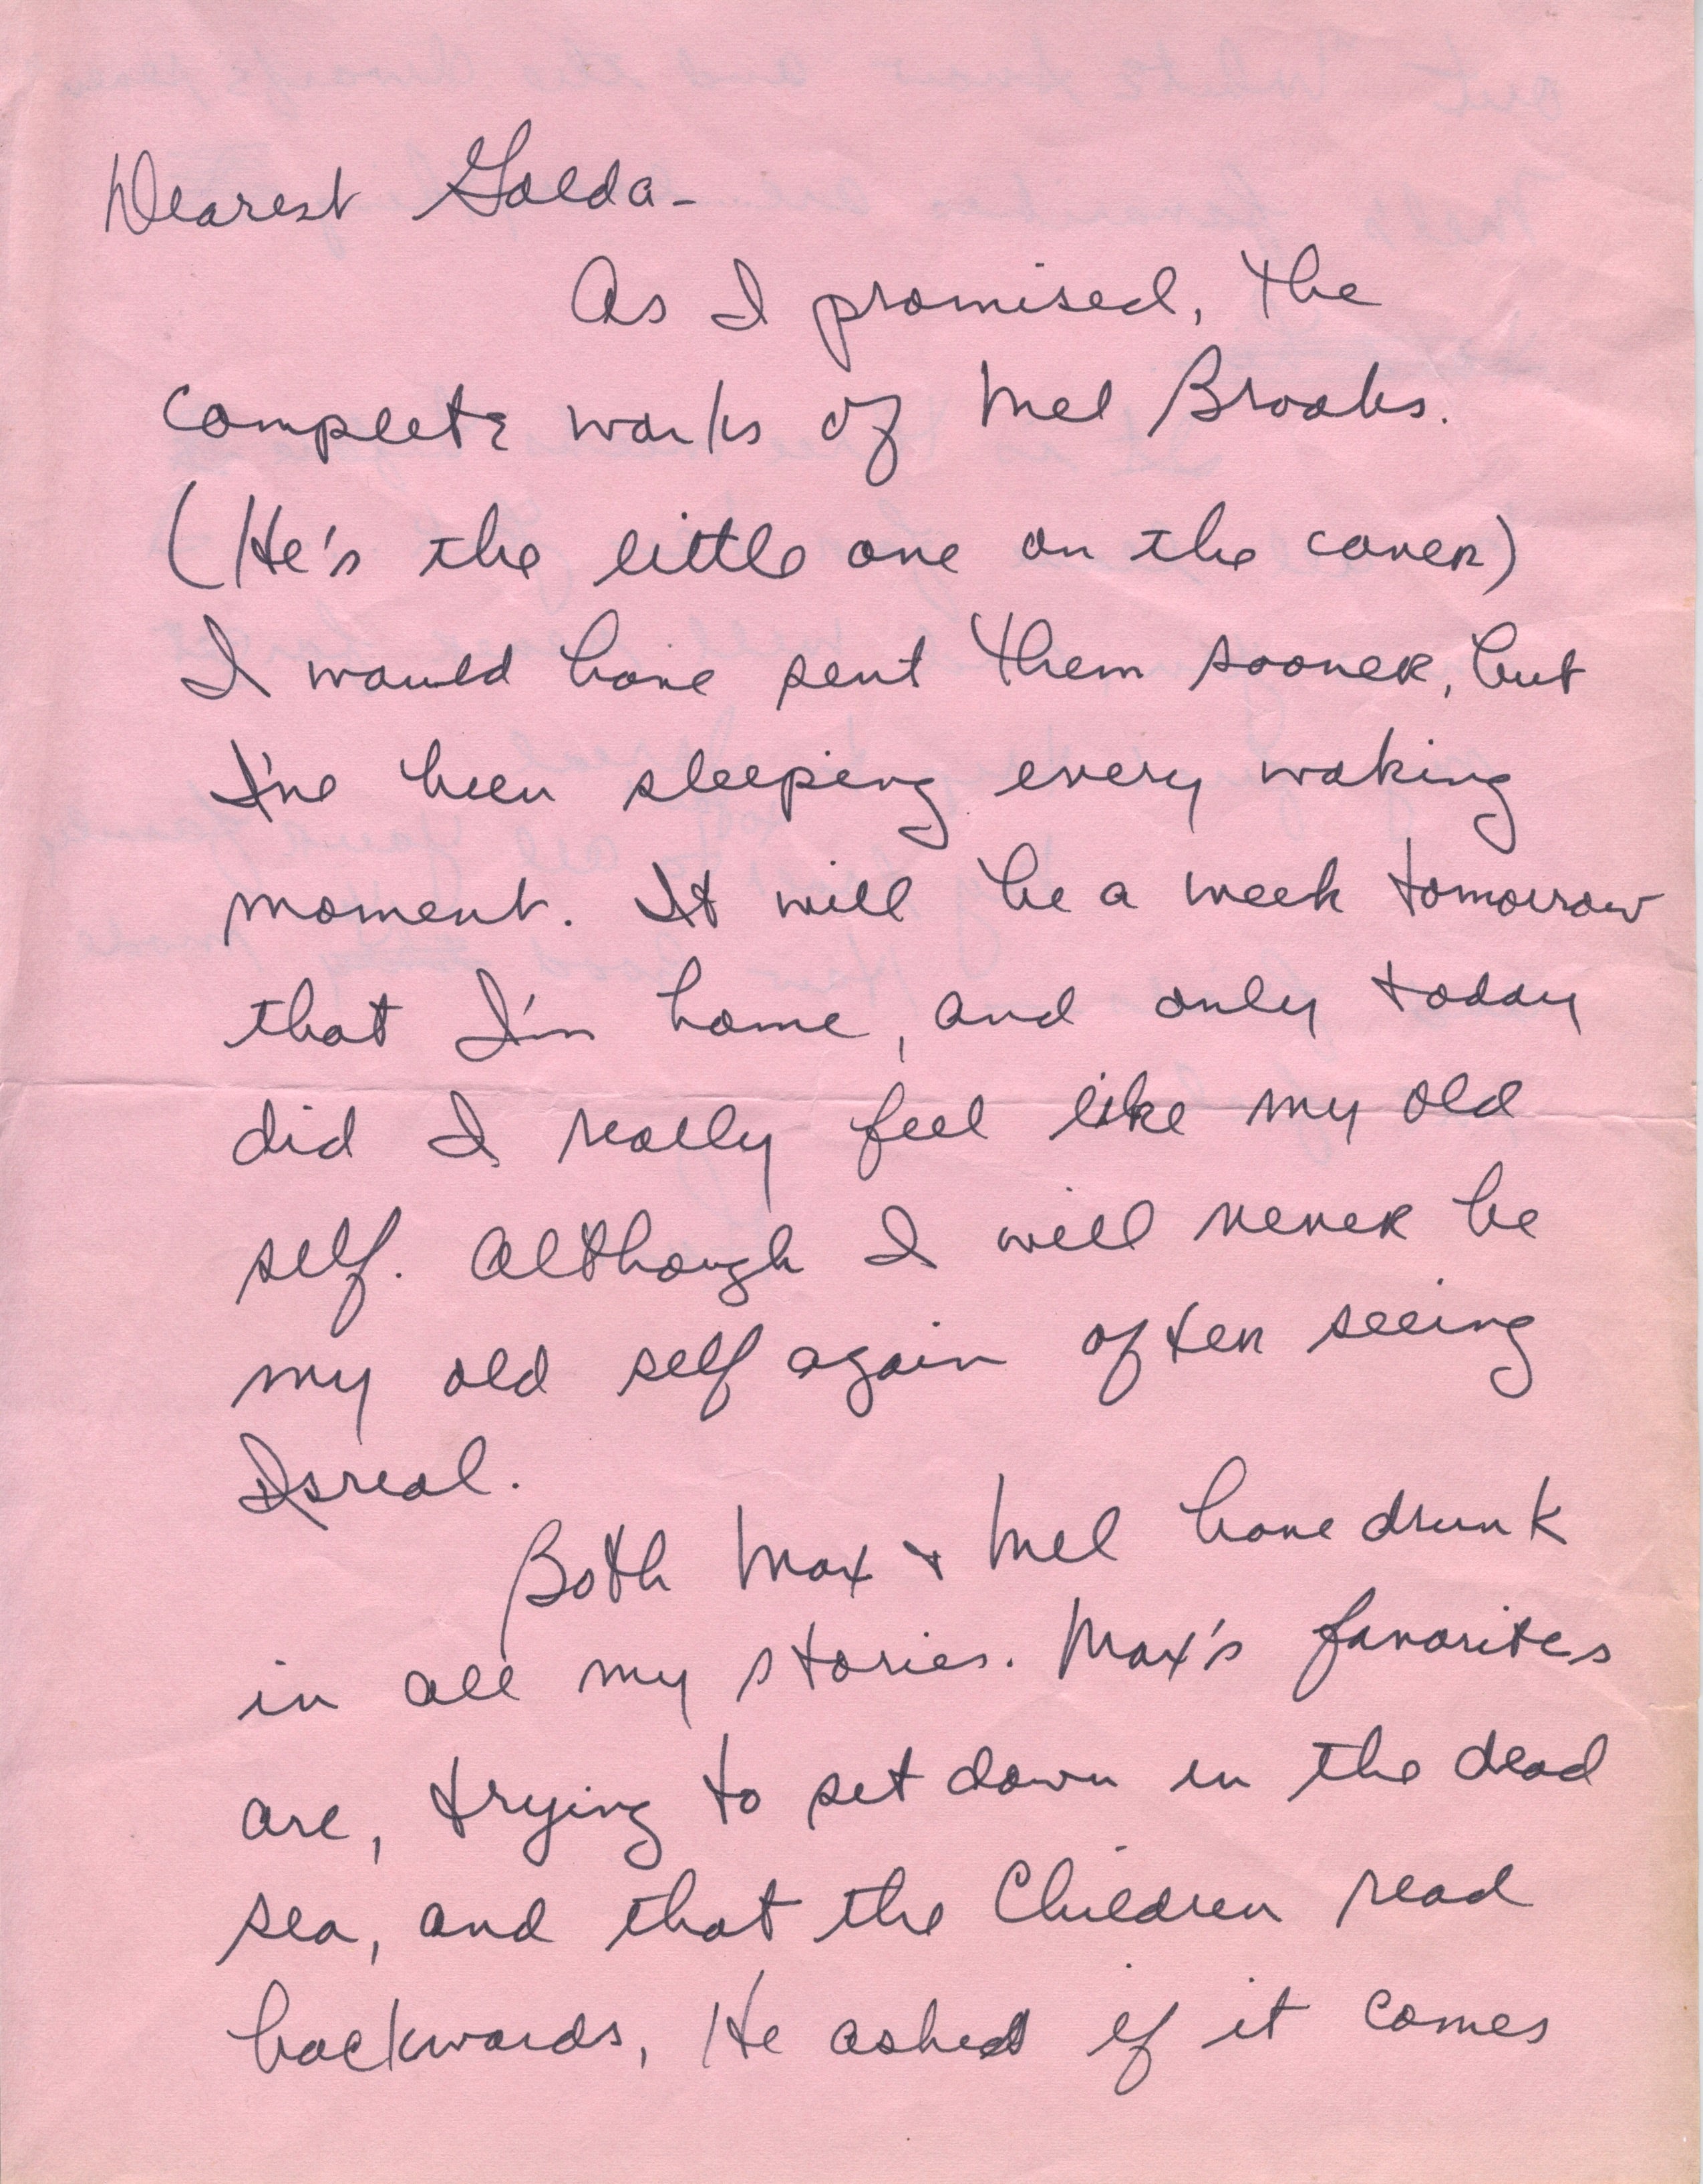 Dearest Golda-
As I promised, the
complete works of Mel Brooks.
(He's the little one on the cover)
I would have sent them sooner, but
I've been sleeping every waking
moment. It will be a week tomorrow
that I'm home, and only today
did I really feel like my old
self. Although I will never be
my old self again after seeing
Isreal.
Both Max + Mel have drunk
in all my stories. Max's favorites
are, trying to set down in the dead
sea, and that the Children read
backwards, He asked if it comes